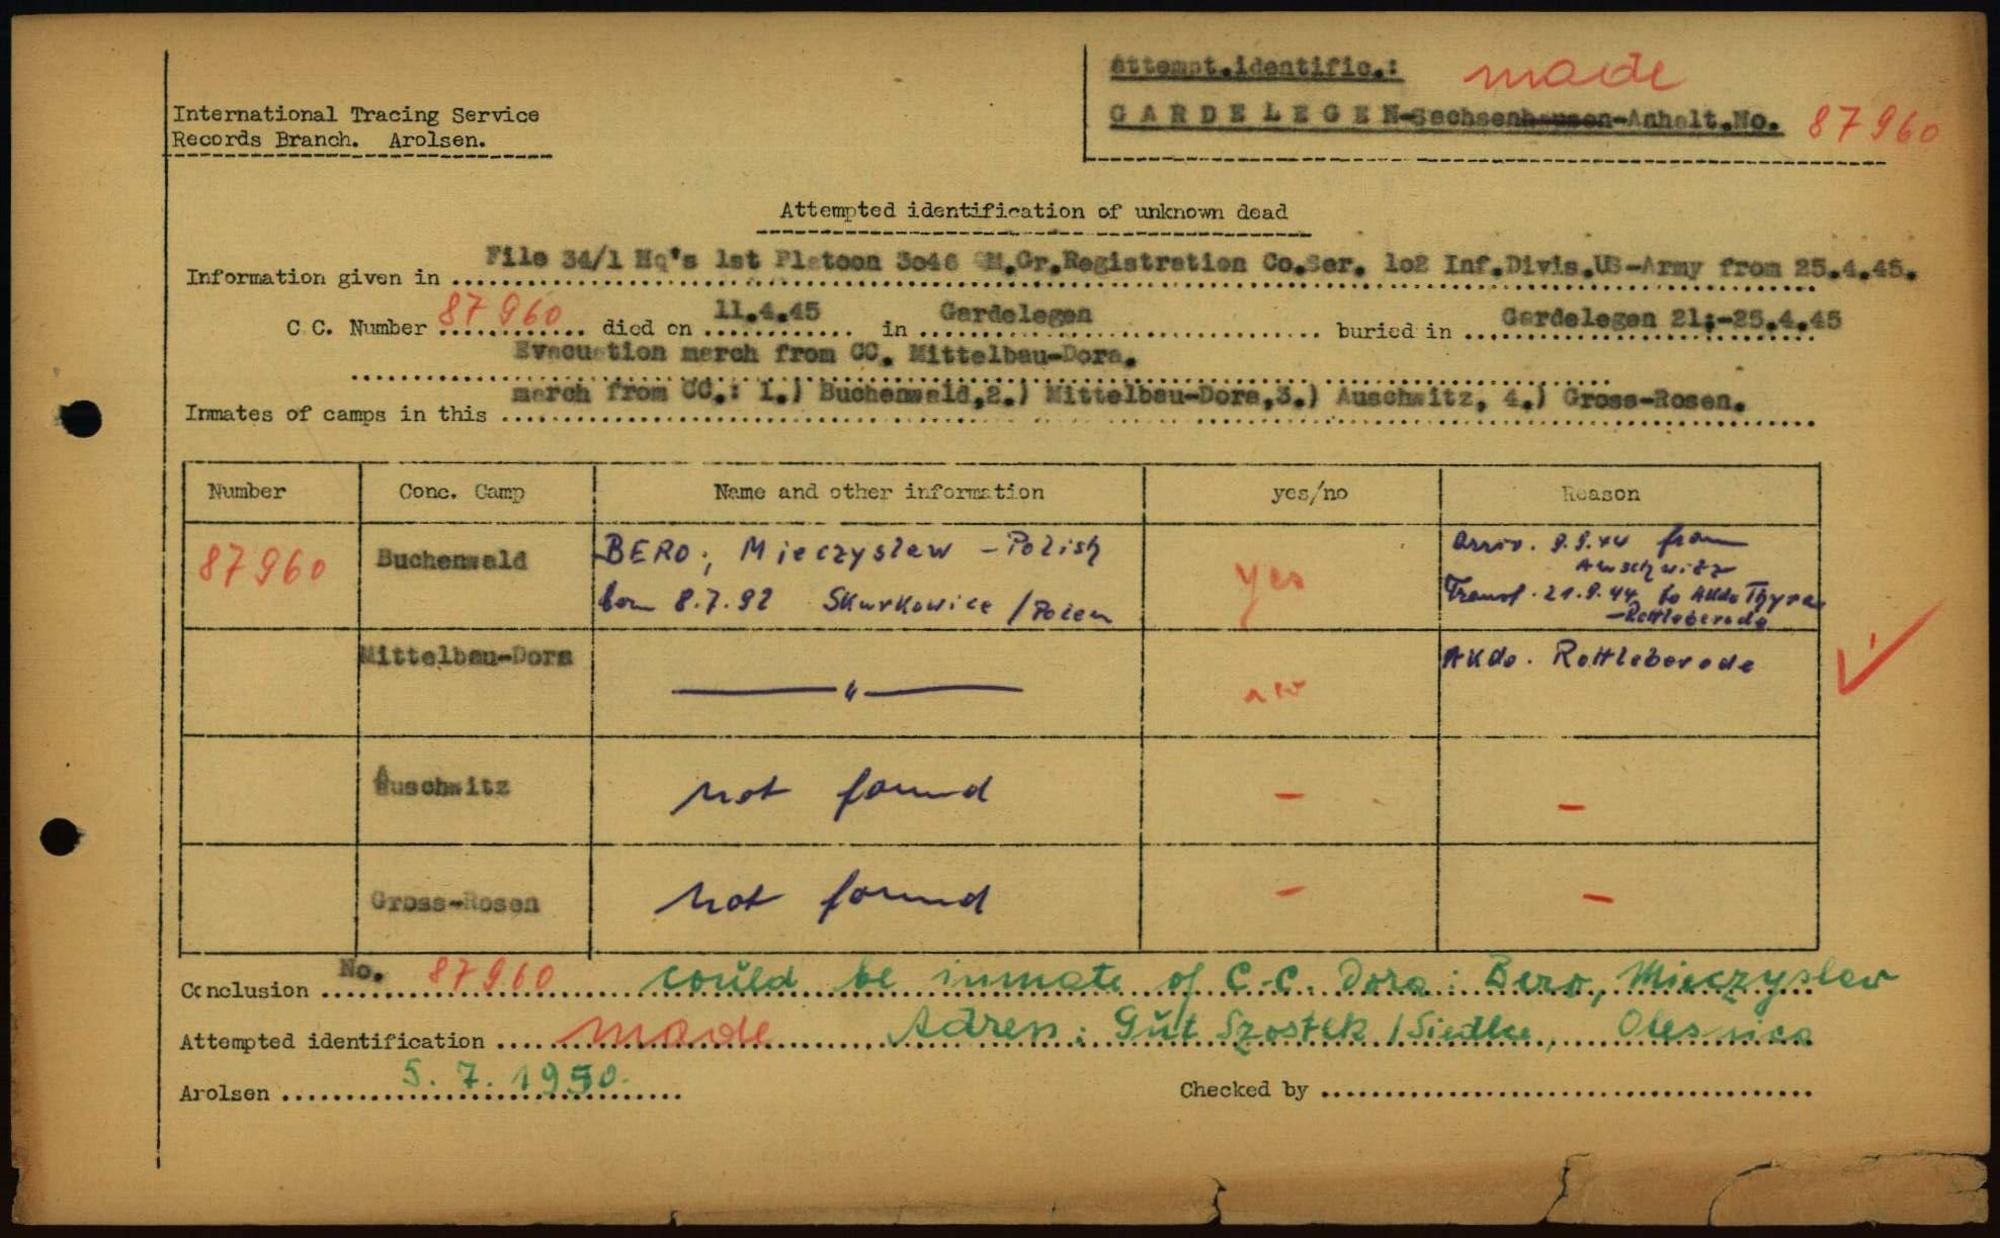 Attempt.identific.: made
International Tracing Service
Records Branch. Arolsen.
G A R D E L E G E N-Sachsenhausen-Anhalt.No. 87960
Attempted identification of unknown dead
Information given in File 34/1 Hq's 1st Platoon 3046 QM.Gr.Registration Co.Ser. 1o2 Inf.Divis.US-Army from 25.4.45.
C C. Number 87960 died on 11.4.45 in Gardelegen buried in Gardelegen 21.-25.4.45
Evacuation march from CC. Mittelbau-Dora.
Inmates of camps in this march from CC.: 1.) Buchenwald,2.) Mittelbau-Dora,3.) Auschwitz, 4.) Gross-Rosen.
Number Conc. Camp Name and other information yes/no Reason
87960 Buchenwald BERO, Mieczyslaw - Polish yes Arriv. 9.9.44 from
Auschwitz
born 8.7.92 Skurkowice / Polen Transf. 21.9.44 to AKdo Thyra
-Rottleberode
Mittelbau-Dora — " — AKdo. Rottleberode
Auschwitz not found - -
Gross-Rosen not found - -
Conclusion No. 87960 could be inmate of C.C. Dora: Bero, Mieczyslav
Attempted identification made Adress: Gut Szostek / Siedlce, Olesnica
Arolsen 5. 7. 1950. Checked by